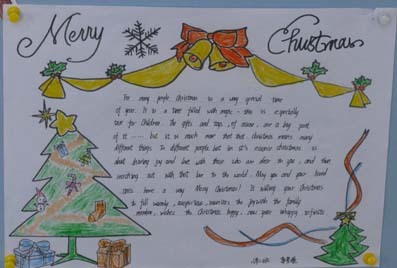 Merry Christmas
For many people Christmas is a very special time
of year. It is a time filled with magic - this is especially
true for Children. The gifts and toys, of course, are a big part
of it ...... but it is much more than that, christmas means many
different things to different people but in it's essence christmas is
about sharing joy and love with those who are dear to you, and then
reaching out with that love to the world. May you and your loved
ones have a very Merry Christmas! Is wishing your Christmas
to fill warmly, auspicious, reunites the joy with the family
member, wishes the Christmas happy, new year